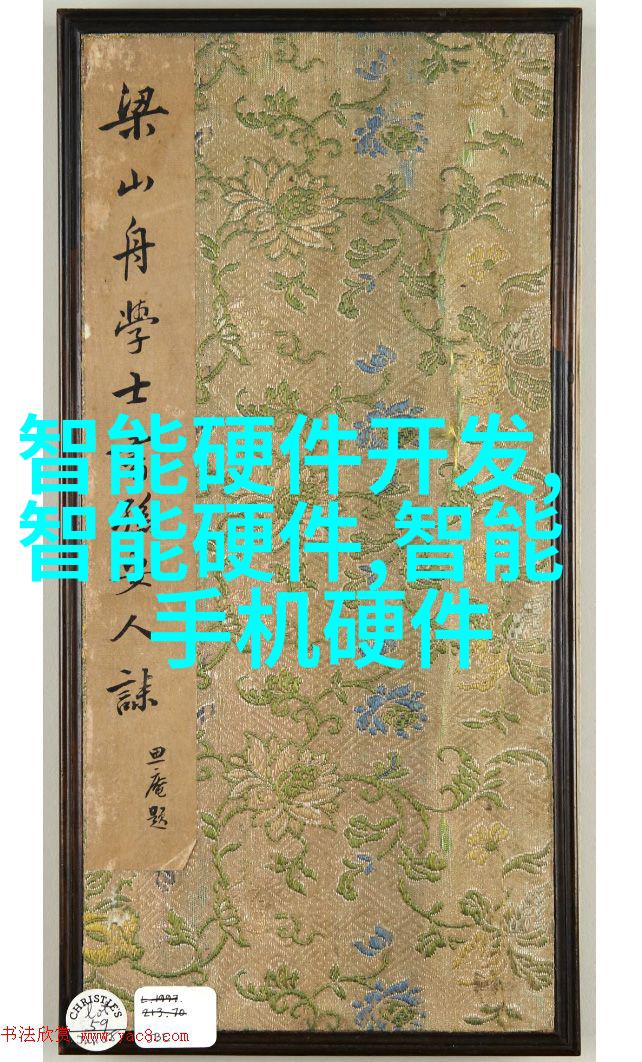 智能硬件开发,
智能硬件,智能
手机硬件
梁山舟學士
人誄
庵題
CHRISTIE'S
lot
59
L.1997.
213.70
书法欣赏 www.yac8.com